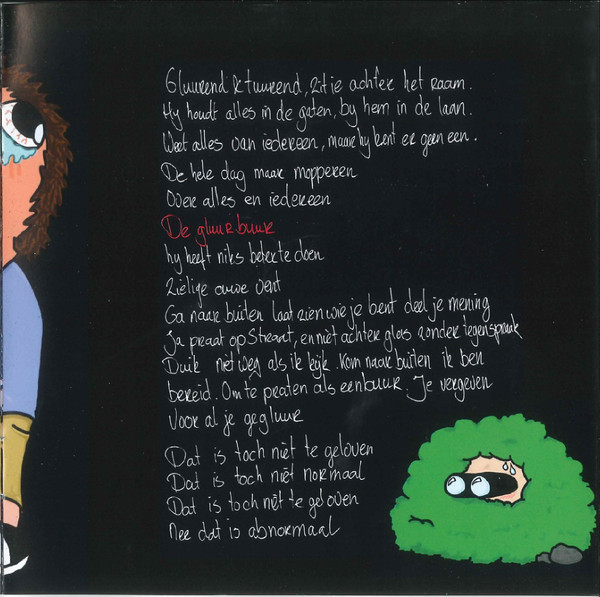 Glurend & turend, zit ie achter het raam.
Hy houdt alles in de gaten, by hem in de laan.
Weet alles van iedereen, maar hy kent er geen een.
De hele dag maar mopperen
Over alles en iedereen
De gluurbuur
hy heeft niks beter te doen
zielige ouwe vent
Ga naar buiten laat zien wie je bent deel je mening
Ja praat op straat, en niet achter glas zonder tegenspraak
Duik niet weg als ik kijk. Kom naar buiten ik ben
bereid. Om te praten als een buur. Je vergeven
Voor al je gegluur
Dat is toch niet te geloven
Dat is toch niet normaal
Dat is toch niet te geloven
Nee dat is abnormaal